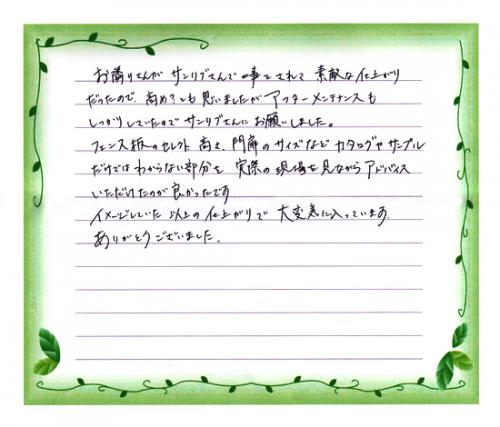 お隣りさんが サンリブさんで工事をされて 素敵な仕上がり
だったので、高め?とも思いましたがアフターメンテナンスも
しっかりしていたのでサンリブさんにお願いしました。
フェンス板のセレクト 高さ、門扉のサイズなど カタログやサンプル
だけではわからない部分を 実際の現場を見ながら アドバイス
いただけたのが良かったです
イメージしていた以上の仕上がりで 大変気に入っています。
ありがとうございました。